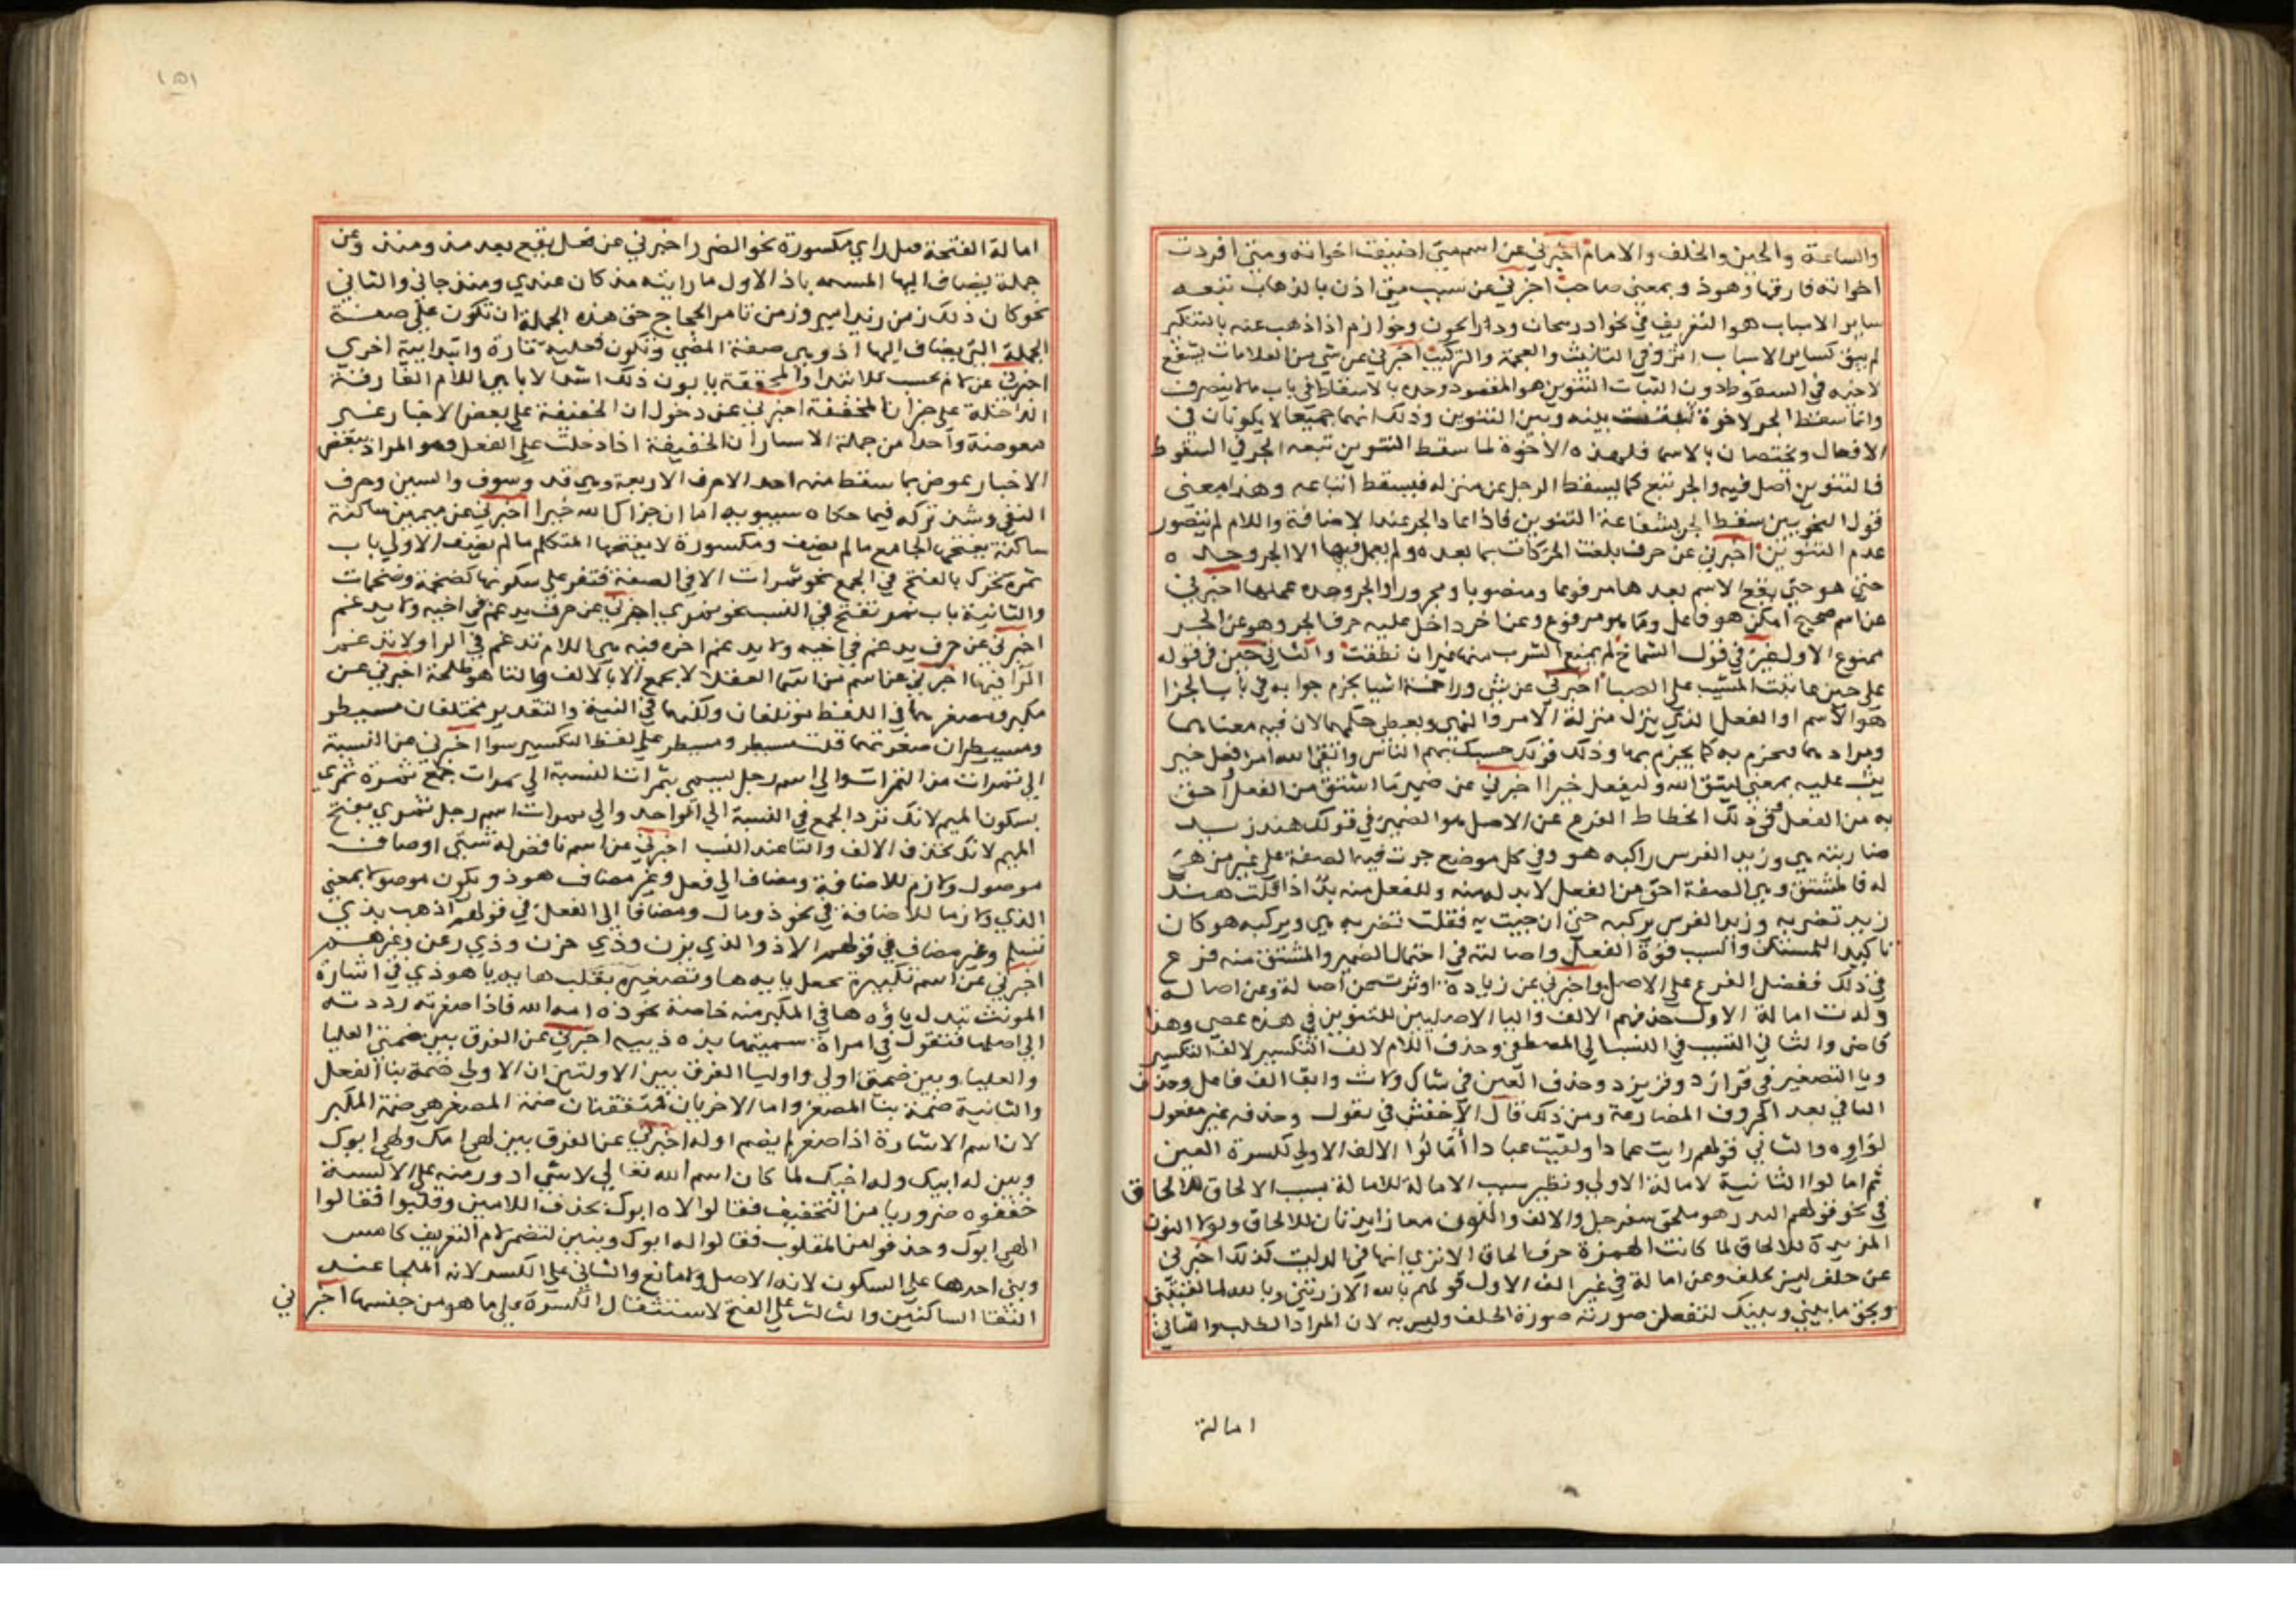 والساعة والحين والخلف والامام اخبرني عن اسم متى اضيفت اخواته ومتى افردت
اخواته فارقها وهو ذو بمعنى صاحب اخبرني عن سبب متى اذن بالذهاب تبعه
ساير الاسباب هو التعريف في نحو اذربيجان ودارابجون وخوارزم اذا ذهب عنه بالتنكير
لم يبق لساير الاسباب اثر وفي التانيث والعجمة والتركيب اخبرني عن شي من العلامات يشفع
لاخيه في السقوط دون الثبات التنوين هو المقصود وحده بالاسقاط في باب مالا ينصرف
وانما سقط الجر لاخوة بينه وبين التنوين وذلك انهما جميعا لا يكونان في
الافعال ويختصان بالاسما فلهذه الاخوة لما سقط التنوين تبعه الجر في السقوط
فالتنوين اصل فيه والجر تبع كما يسقط الرجل عن منزله فيسقط اتباعه وهذا معنى
قول النحويين سقط الجر بشفاعة التنوين فاذا عاد الجر عند الاضافة واللام لم يتصور
عدم التنوين اخبرني عن حرف بلغت الحركات بما بعده ولم يعمل فيها الا الجر وحده
حتى هو حتى يقع الاسم بعدها مرفوعا ومنصوبا ومجرورا والجر وحده عملها اخبرني
عن اسم صحيح امكن هو فاعل وما هو مرفوع وعن اخر داخل عليه حرف الجر وهو عن الجر
ممنوع الاول غير في قول الشماخ لم يمنع الشرب منها غير ان نطقت والثاني حين في قوله
على حين عاتبت المشيب على الصبا اخبرني عن شي وراخمسة اشيا يجزم جوابه في باب الجزا
هو الاسم او الفعل الذي ينزل منزلة الامر والنهي ويعطى حكمهما لان فيه معناهما
ومرادهما فيجزم به كما يجزم بهما وذلك قولك حسبك ينم الناس واتقى الله امرؤ فعل خير
يثب عليه بمعنى ليتق الله وليفعل خيرا اخبرني عن ضمير ما اشتق من الفعل احق
به من الفعل وفي ذلك انحطاط الفرع عن الاصل هو الضمير في قولك هند زيد
ضاربته هي وزيد الفرس راكبه هو وفي كل موضع جرت فيه الصفة على غير من هي
له فالمشتق وهي الصفة احق من الفعل لابد له منه وللفعل منه بد اذا قلت هند
زيد تضربه وزيد الفرس يركبه حتى ان جيت به فقلت تضربه هي ويركبه هو كان
تاكيدا للمستكن والسبب قوة الفعل واصالته في احتمال الضمير والمشتق منه فرع
في ذلك ففضل الفرع على الاصل واخبرني عن زيادة اوثرت عن اصالة وعن اصالة
ولدت امالة الاول حذفهم الالف واليا الاصليين للتنوين في هذه عصى وهذا
قاض والثاني النسب في النسب الى المصطفى وحذف اللام لالف التكسير
ويا التصغير في فرازد وفريزد وحذف العين في شاك ولاث وابقا الف فاعل وحذف
الفا في يعد لحروف المضارعة ومن ذلك قال الاخفش في مقول وحذفه عين مفعول
لواوه والثاني قولهم رايت عمادا ولقيت عبادا امالوا الالف الاولى لكسرة العين
ثم امالوا الثانية لامالة الاولى ونظير سبب الامالة للامالة سبب الالحاق للالحاق
في نحو قولهم النددهو ملحق بسفرجل والالف والنون معا زايدتان للالحاق ولولا النون
المزيدة للالحاق لما كانت الهمزة حرف الحاق الا ترى انها في الد ليست كذلك اخبرني
عن حلف ليس بحلف وعن امالة في غير الف الاول قولهم بالله الا زرتني وبالله لما لقيتني
وبحق ما بيني وبينك لتفعلن صورته صورة الحلف وليس به لان المراد الطلب والثاني
امالة
١٥١
امالة الفتحة قبل راي مكسورة نحو الضرر اخبرني عن فعل يقع بعد منذ ومنذ وعن
جملة يضاف اليها المسمه باذ الاول ما رايته مذ كان عندي ومنذ جاني والثاني
نحو كان ذلك زمن زيد امير وزمن تامر الحجاج حق هذه الجملة ان تكون على صفة
الجملة التي يضاف اليها اذ وهي صفة المضي وتكون فعلية تارة وابتدائية اخرى
اخبرني عن لام تحسب للابتدا والمحققة يابون ذلك اشد الابا هي اللام الفارقة
الداخلة على خبر ان المخففة اخبرني عن دخول ان الخفيفة على بعض الاخبار غير
معوضة واحدا من جملة الاستار ان الخفيفة اذا دخلت على الفعل وهو المراد ببعض
الاخبار عوض بما سقط منه احد الاحرف الاربعة وهي قد وسوف والسين وحرف
النفي وشذ تركه فيما حكاه سيبويه اما ان جزاك الله خيرا اخبرني عن ميمين ساكنة
ساكنة يفتحها الجامع ما لم يصف ومكسورة لا يفتحها المتكلم ما لم يضف الاولى باب
تمرة تحرك بالفتح في الجمع نحو تمرات الا في الصفة فتقر على سكونها كضخمة وضخمات
والثانية باب نمر تفتح في النسب نحو نمري اخبرني عن حرف يدغم في اخيه ولا يدغم
اخبرني عن حرف يدغم في اخيه ولا يدغم اخره فيه هي اللام تدغم في الرا ولا تدغم
الرا فيها اخبرني عن اسم من اسما العقلا لا يجمع الا بالالف والتا هو طلحة اخبرني عن
مكبر ومصغر هما في اللفظ مؤتلفان ولكنهما في النية والتقدير مختلفان مسيطر
ومسيطران صغرتهما قلت مسيطر ومسيطر على لفظ التكبير سوا اخبرني عن النسبة
الى تمرات من التمرات والى اسم رجل يسمى بتمرات النسبة الى تمرات جمع تمرة تمري
بسكون الميم لانك ترد الجمع في النسبة الى الواحد والى تمرات اسم رجل تمري بفتح
الميم لانك تحذف الالف والتا عند النسب اخبرني عن اسم ناقص له شتى اوصاف
موصول ولازم للاضافة ومضاف الى فعل وغير مضاف هو ذو يكون موصولا بمعنى
الذي ولازما للاضافة في نحو ذو مال ومضافا الى الفعل في قولهم اذهب بذي
تسلم وغير مضاف في قولهم الاذوا لذي يزن وذي جزن وذي رعين وغيرهم
اخبرني عن اسم تكبيره يجعل يايه ها وتصغيره يقلب هايه يا هو ذي في اشارة
المونث تبدل ياؤه ها في المكبر منه خاصة نحو ذه امة الله فاذا صغرته رددته
الى اصلها فتقول في امراة سميتها بذه ذييه اخبرني عن الفرق بين ضمتي العليا
والعليا وبين ضمتي اولي واوليا الفرق بين الاولتين ان الاولى ضمة بنا الفعل
والثانية ضمة بنا المصغر واما الاخريان فتتفقتان ضمة المصغر هي ضمة المكبر
لان اسم الاشارة اذا صغر لم يضم اوله اخبرني عن الفرق بين لهي امك ولهي ابوك
وبين له ابيك وله اخيك لما كان اسم الله تعالى لا شي ادور منه على الالسنة
خففوه ضروريا من التخفيف فقالوا لاه ابوك بحذف اللامين وقلبوا فقالوا
لهي ابوك وحذفوا من المقلوب فقالوا له ابوك وبنين لتضمن لام التعريف كامس
وبنى احدها على السكون لانه الاصل ولا مانع والثاني على الكسر لانه الملجا عند
التقا الساكنين والثالث على الفتح لاستثقال الكسرة على ما هو من جنسها اخبرني